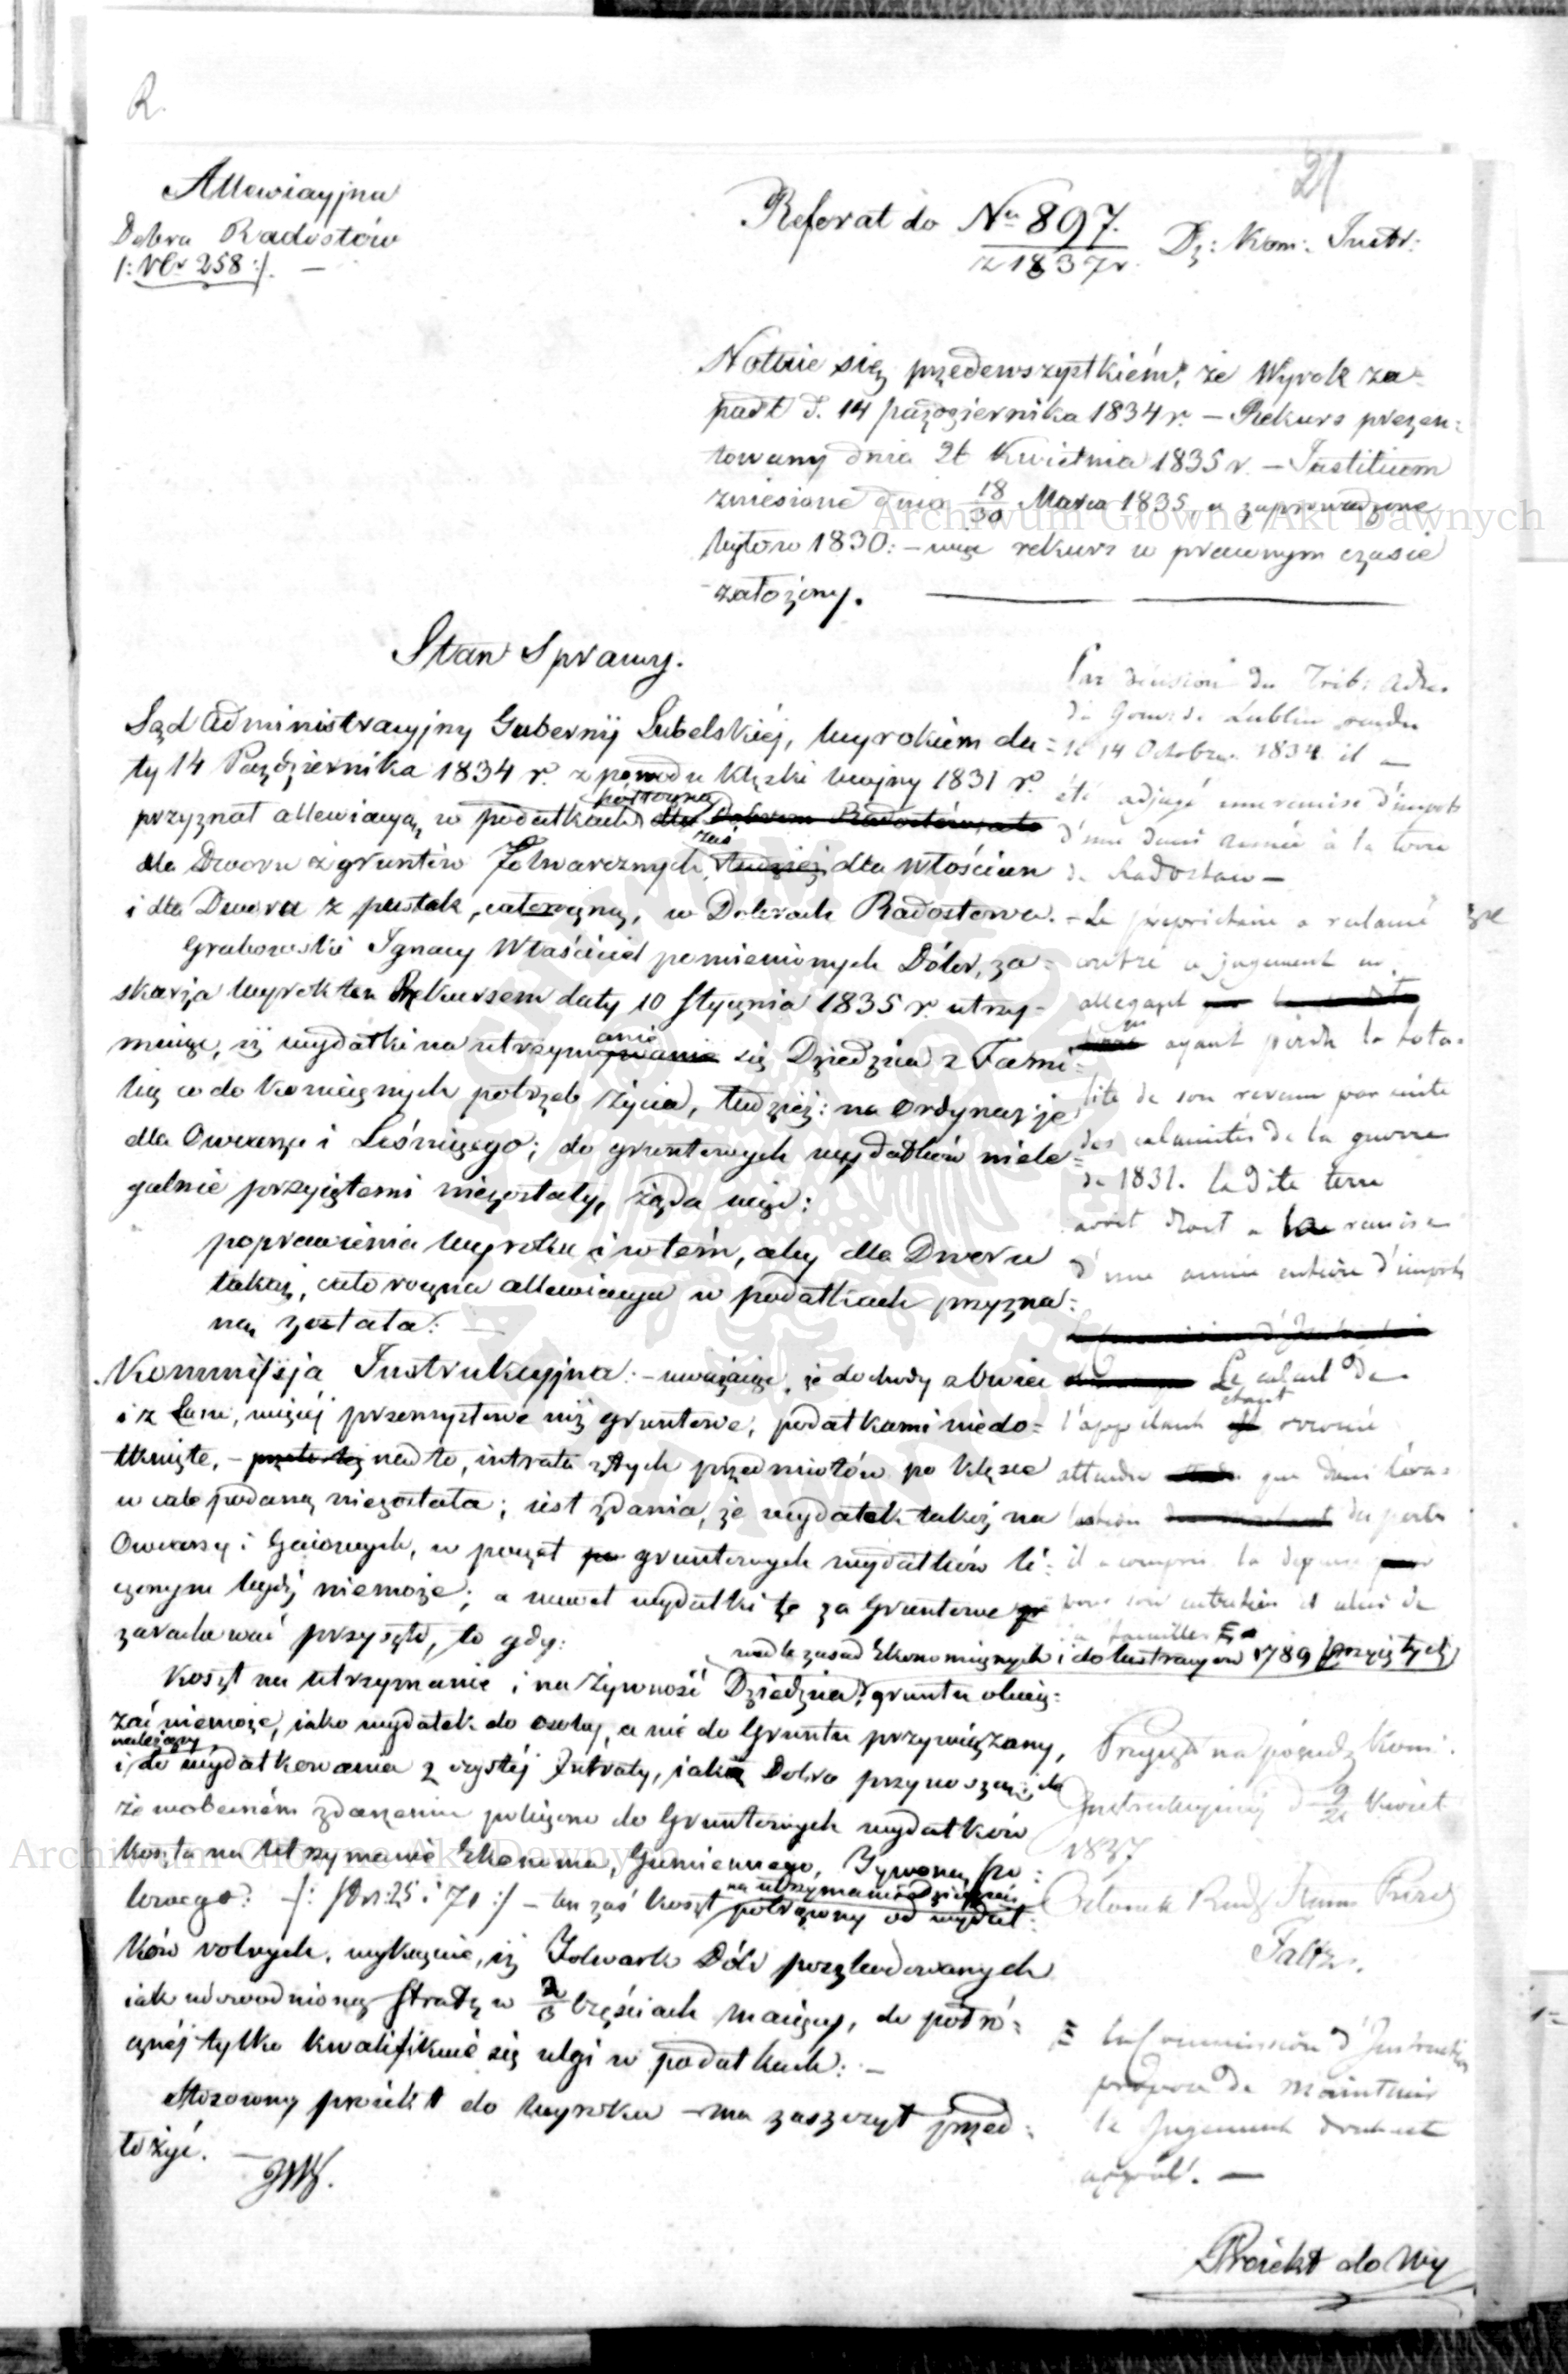 R.
21
Allewiacyjna
Dobra Radostów
/: Nr 258 :/. —
Referat do Nru 897.
z 1837 r.
Dz: Kom: Instr:
Notuie się przedewszystkiém, że Wyrok za-
padł d. 14 paźdzjernika 1834 r. — Rekurs prezen-
towany dnia 26 Kwietnia 1835 r. — Justitium
zniesione dnia 18/30 Marca 1835, a zaprowadzone
było w 1830: — więc rekurs w prawnym czasie
założony.
Stan Sprawy.
Sąd Administracyjny Gubernij Lubelskiéj, wyrokiem da-
ty 14 Paździérnika 1834 r. z powodu klęski wojny 1831 r.
przyznał allewiacyą w podatkach półroczną dla Dobrom Radostów, ato
dla Dworu z gruntów Folwarcznych, zaś tudzież dla Włościan
i dla Dworu z pustek, całoroczną, w Dobrach Radostowa.
Grabowski Ignacy Właściciel pomienionych Dóbr, za-
skarża wyrok ten Rekursem daty 10 Stycznia 1835 r. utrzy-
muiąc, iż wydatki na utrzymanie się Dziedzica z Fami-
lią co do koniecznych potrzeb życia, tudzież: na Ordynarje
dla Owczarza i Leśniczego; do gruntowych wydatków niele-
galnie przyiętemi niezostały, żąda więc:
poprawienia wyroku i w tém, aby dla Dworu
takaż, całoroczna allewiacya w podatkach przyzna-
ną została: —
Kommissja Instrukcyjna: — uważaiąc, że dochody z Owiec
i z Lasu, więcéj przemysłowe niż gruntowe, podatkami niedo-
tknięte, — nadto, intrata z tych przedmiotów po klęsce
wcale podaną niezostała; iest zdania, że wydatek takiż na
Owczarzy i Gaiowych, w poczet gruntowych wydatków li-
czonym bydź niemoże; a nawet wydatki te za Gruntowe
zarachować przyszło, to gdy:
wedle zasad Ekonomicznych i do lustracyi w 1789 przyiętych
Koszt na utrzymanie i na żywność Dziedzica, gruntu obcią-
żać niemoże, iako wydatek do osoby, a nie do Gruntu przywiązany,
należący
i do wydatkowania z czystéj Intraty, iaką Dobra przynoszą;
że w obecném zdarzeniu policzono do Gruntowych wydatków
koszta na utrzymanie Ekonoma, Gumiennego, Dziewczyny po-
lowego: /: Str: 25 i 71 :/ — ten zaś koszt na utrzymanie Dziedzica
potrącony od wydat-
ków rolnych, wykazuie, iż Folwark Dóbr poszkodowanych
iak udowodnioną stratę w 2/3 częściach maiący, do półro-
cznéj tylko kwalifikuie się ulgi w podatkach: —
Stosowny proiekt do wyroku — ma zaszczyt przed-
łożyć. —
Par décision du Trib: Adm.
du Gouv: de Lublin rendu
le 14 Octobre 1834 il —
été adjugé une remise d'impots
d'une demi année à la terre
de Radostow —
— Le propriétaire a réclamé
contre ce jugement en
allegant
ayant perdu la tota-
lité de son revenu par suite
des calamités de la guerre
de 1831. la dite terre
avoit droit a la remise
d'une année entière d'impots
Le calcul de
l'appelant étant erroné
attendu que dans l'éva-
luation des pertes
il a compris la depense
pour son entretien et celui de
sa famille
Przyięto na posiedz. Kom:
Instrukcyjnéj d. 9/21 Kwiet
1837
Członek Rady Stanu Prezd
Faltz.
la Commission d'Instruction
propose de maintenir
le Jugement dont est
appel. —
Proiekt do Wy